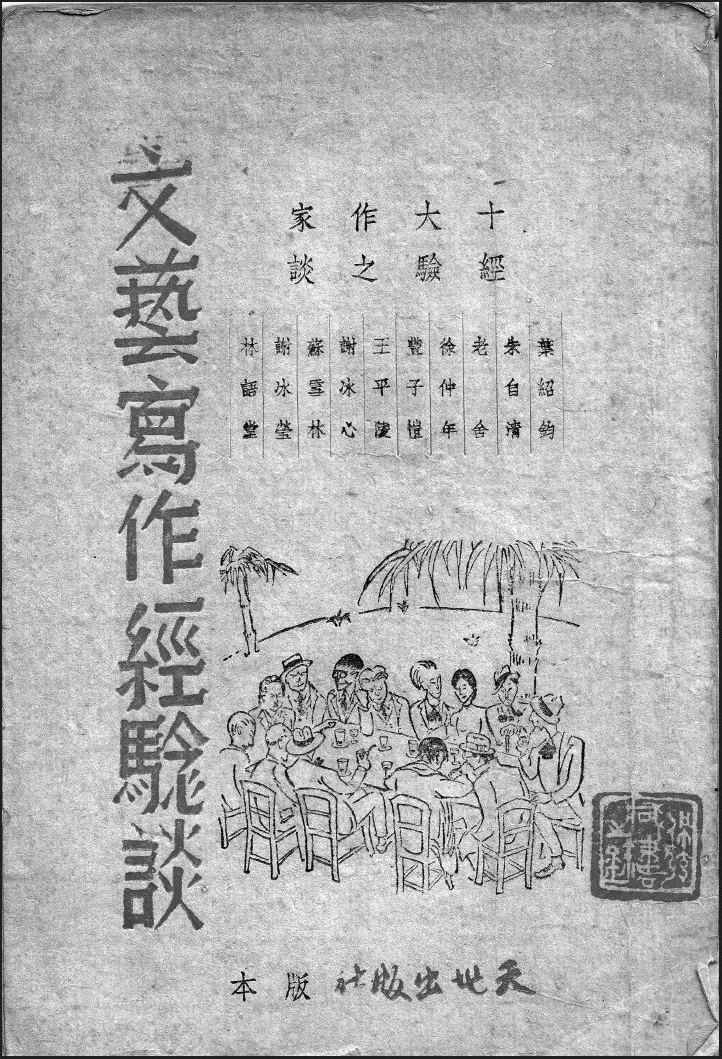 十大作家
經驗之談
葉紹鈞
朱自清
老舍
徐仲年
豐子愷
王平陵
謝冰心
蘇雪林
謝冰瑩
林語堂
文藝寫作經騐談
天地出版社版本